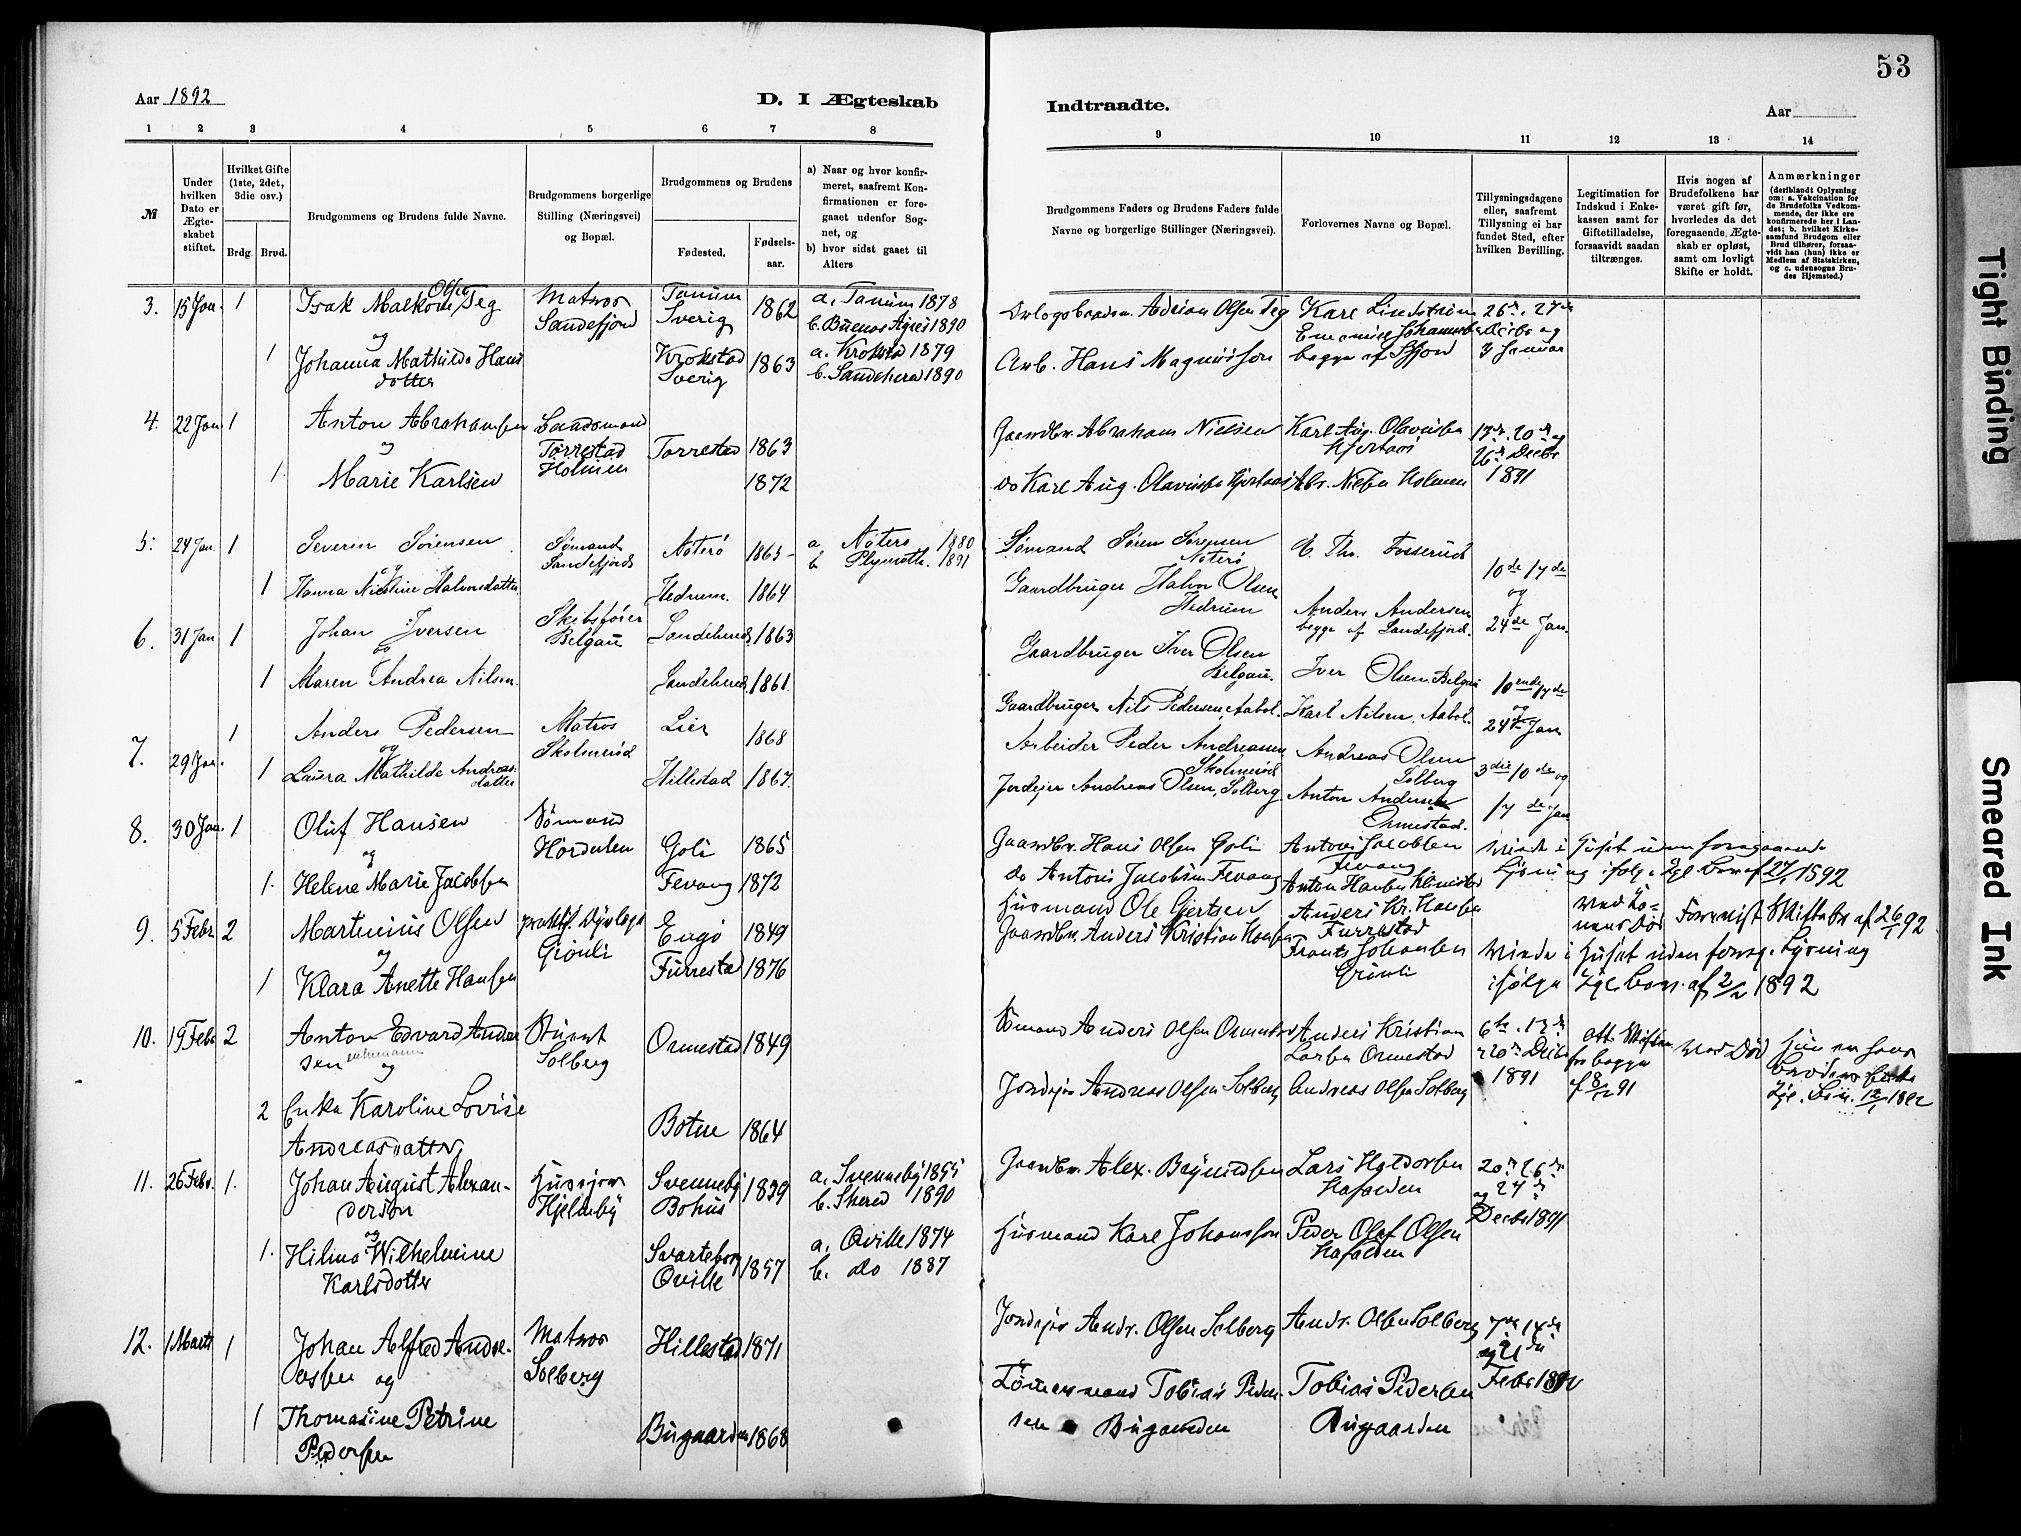 53
Aar 1892
D. I Ægteskab
Indtraadte.
Aar
1 2 3 4 5 6 7 8 9 10 11 12 13 14
№
Under hvilken Dato er Ægteskabet stiftet.
Hvilket Gifte (1ste, 2det, 3die osv.)
Brdg. Brud.
Brudgommens og Brudens fulde Navne.
Brudgommens borgerlige Stilling (Næringsvei) og Bopæl.
Brudgommens og Brudens
Fødested.
Fødselsaar.
a) Naar og hvor konfirmeret, saafremt Konfirmationen er foregaaet udenfor Sognet, og
b) hvor sidst gaaet til Alters
Brudgommens Faders og Brudens Faders fulde Navne og borgerlige Stillinger (Næringsvei).
Forlovernes Navne og Bopæl.
Tillysningsdagene eller, saafremt Tillysning ei har fundet Sted, efter hvilken Bevilling.
Legitimation for Indskud i Enkekassen samt for Giftetilladelse, forsaavidt saadan tiltrænges.
Hvis nogen af Brudefolkene har været gift før, hvorledes da det foregaaende Ægteskab er opløst, samt om lovligt Skifte er holdt.
Anmærkninger (deriblandt Oplysning om: a. Vakcination for de Brudefolks Vedkommende, der ikke ere konfirmerede her i Landet; b. hvilket Kirkesamfund Brudgom eller Brud tilhører, forsaavidt han (hun) ikke er Medlem af Statskirken, og c. udensogns Brudes Hjemsted.)
3. 15 Jan. 1 Isak Malkom Olsen Teg Matros Sandefjord Tanum Sverig 1862 a. Tanum 1878 b. Buenos Ayres 1890 Adrian Olsen Teg Karl Lindström 26de, 27de
og
1 Johanna Mathilda Hansdotter Krokstad Sverig 1863 a. Krokstad 1879 b. Sandeherad 1890 Arb. Hans Magnusson begge af Sfjord 3 Januar
4. 22 Jan 1 Anton Abrahamsen Torrestad Holmen Torrestad 1863 Gaardbr. Abraham Nielsen Karl Aug. Olavesen Hjertaas 13de, 20de og 26de Decbr 1891
og
1. Marie Karlsen 1872 do Karl Aug. Olavesen Hjertaas Abr. Nielsen Holmen
5. 24 Jan. 1 Severin Sørensen Sømand Sandefjord Nøterø 1865 a Nøterø 1880 b Plymouth. 1891 Sømand Søren Sørensen Nøterø Th. Fosserud 10de 17de og 24de Jan.
og
1 Hanna Nicoline Halvorsdatter Hedrum. 1864 Gaardbruger Halvor Olsen Hedrum Anders Andersen begge af Sandefjord.
6. 31 Jan 1 Johan Iversen Skibsfører Belgau Sandeherred 1863 Gaardbruger Iver Olsen Belgau. Iver Olsen Belgau 10ende 17de og 24de Jan
og
1 Maren Andrea Nilsen. Sandeherred 1861 Gaardbruger Nils Pedersen, Aabol. Karl Nilsen, Aabol.
7. 29 Jan. 1 Anders Pedersen Matros Skolmerød Lier 1868 Arbeider Peder Andreasen Skolmerød Andreas Olsen Solberg 3die 10de og 17de Jan
og
1 Laura Mathilde Andreasdatter Hillestad 1867. Jordejer Andreas Olsen, Solberg Anton Andersen Ormestad.
8. 30 Jan. 1 Oluf Hansen Sømand Hørdalen Goli 1865 Gaardbr. Hans Olsen Goli Antoni Jacobsen Fevang Viede i Huset uden foregaaende
og
1. Helene Marie Jacobsen Fevang 1872 do Antoni Jacobsen Fevang Lysning ifølge Kgl. Bev. af 27/1 1892
9. 5 Febr. 2 Martinius Olsen Gionli Engø 1849 Husmand Ole Gjertsen Anders Kr. Hansen Furrestad ved Konens Død Forevist Skiftebr. af 26/1 92
og
1 Klara Anette Hansen Furrestad 1876 Gaardbr. Anders Kristian Hansen Frants Johansen Viede i Huset uden foreg. Lysning ifølge Kgl. bev. af 2/2 1892
10. 19 Febr 2 Anton Edvard Andersen enkemann Solberg Ormestad 1849 Sømand Anders Olsen Ormestad Anders Kristian Larsen Ormestad 6te. 13de 20de Decbr 1891 Att. Skiften for begge af 8/12 91 Ved Død
og
2 Enka Karoline Lovise Andreasdatter Botne 1864 Jordejer Andreas Olsen Solberg Andreas Olsen Solberg
11. 26 Febr. 1. Johan August Alexanderson Hjelmby Svenneby Bohus 1839 a. Svenneby 1855 b. Skeed 1890 Gaardbr. Alex. Lars Haldorsen Hafalden 20de 26de og 24de Decbr 1891
og
1. Hilma Wilhelmine Karlsdotter Svarteborg Qville 1857 a. Qville 1874 b. do 1887 Husmand Karl Johansson Peder Olaf Olsen Hafalden
12. 1 Marts 1 Johan Alfred Andreassen og Matros Solberg Hillestad 1871 Jordejer Andr. Olsen Solberg Andr. Olsen Solberg 7de 14de og 21de Febr 1892
1 Thomasine Petrine Pedersen Bugaarden 1868 Tømmermand Tobias Pedersen Bugaarden Tobias Pedersen Bugaarden
Tight Binding
Smeared Ink